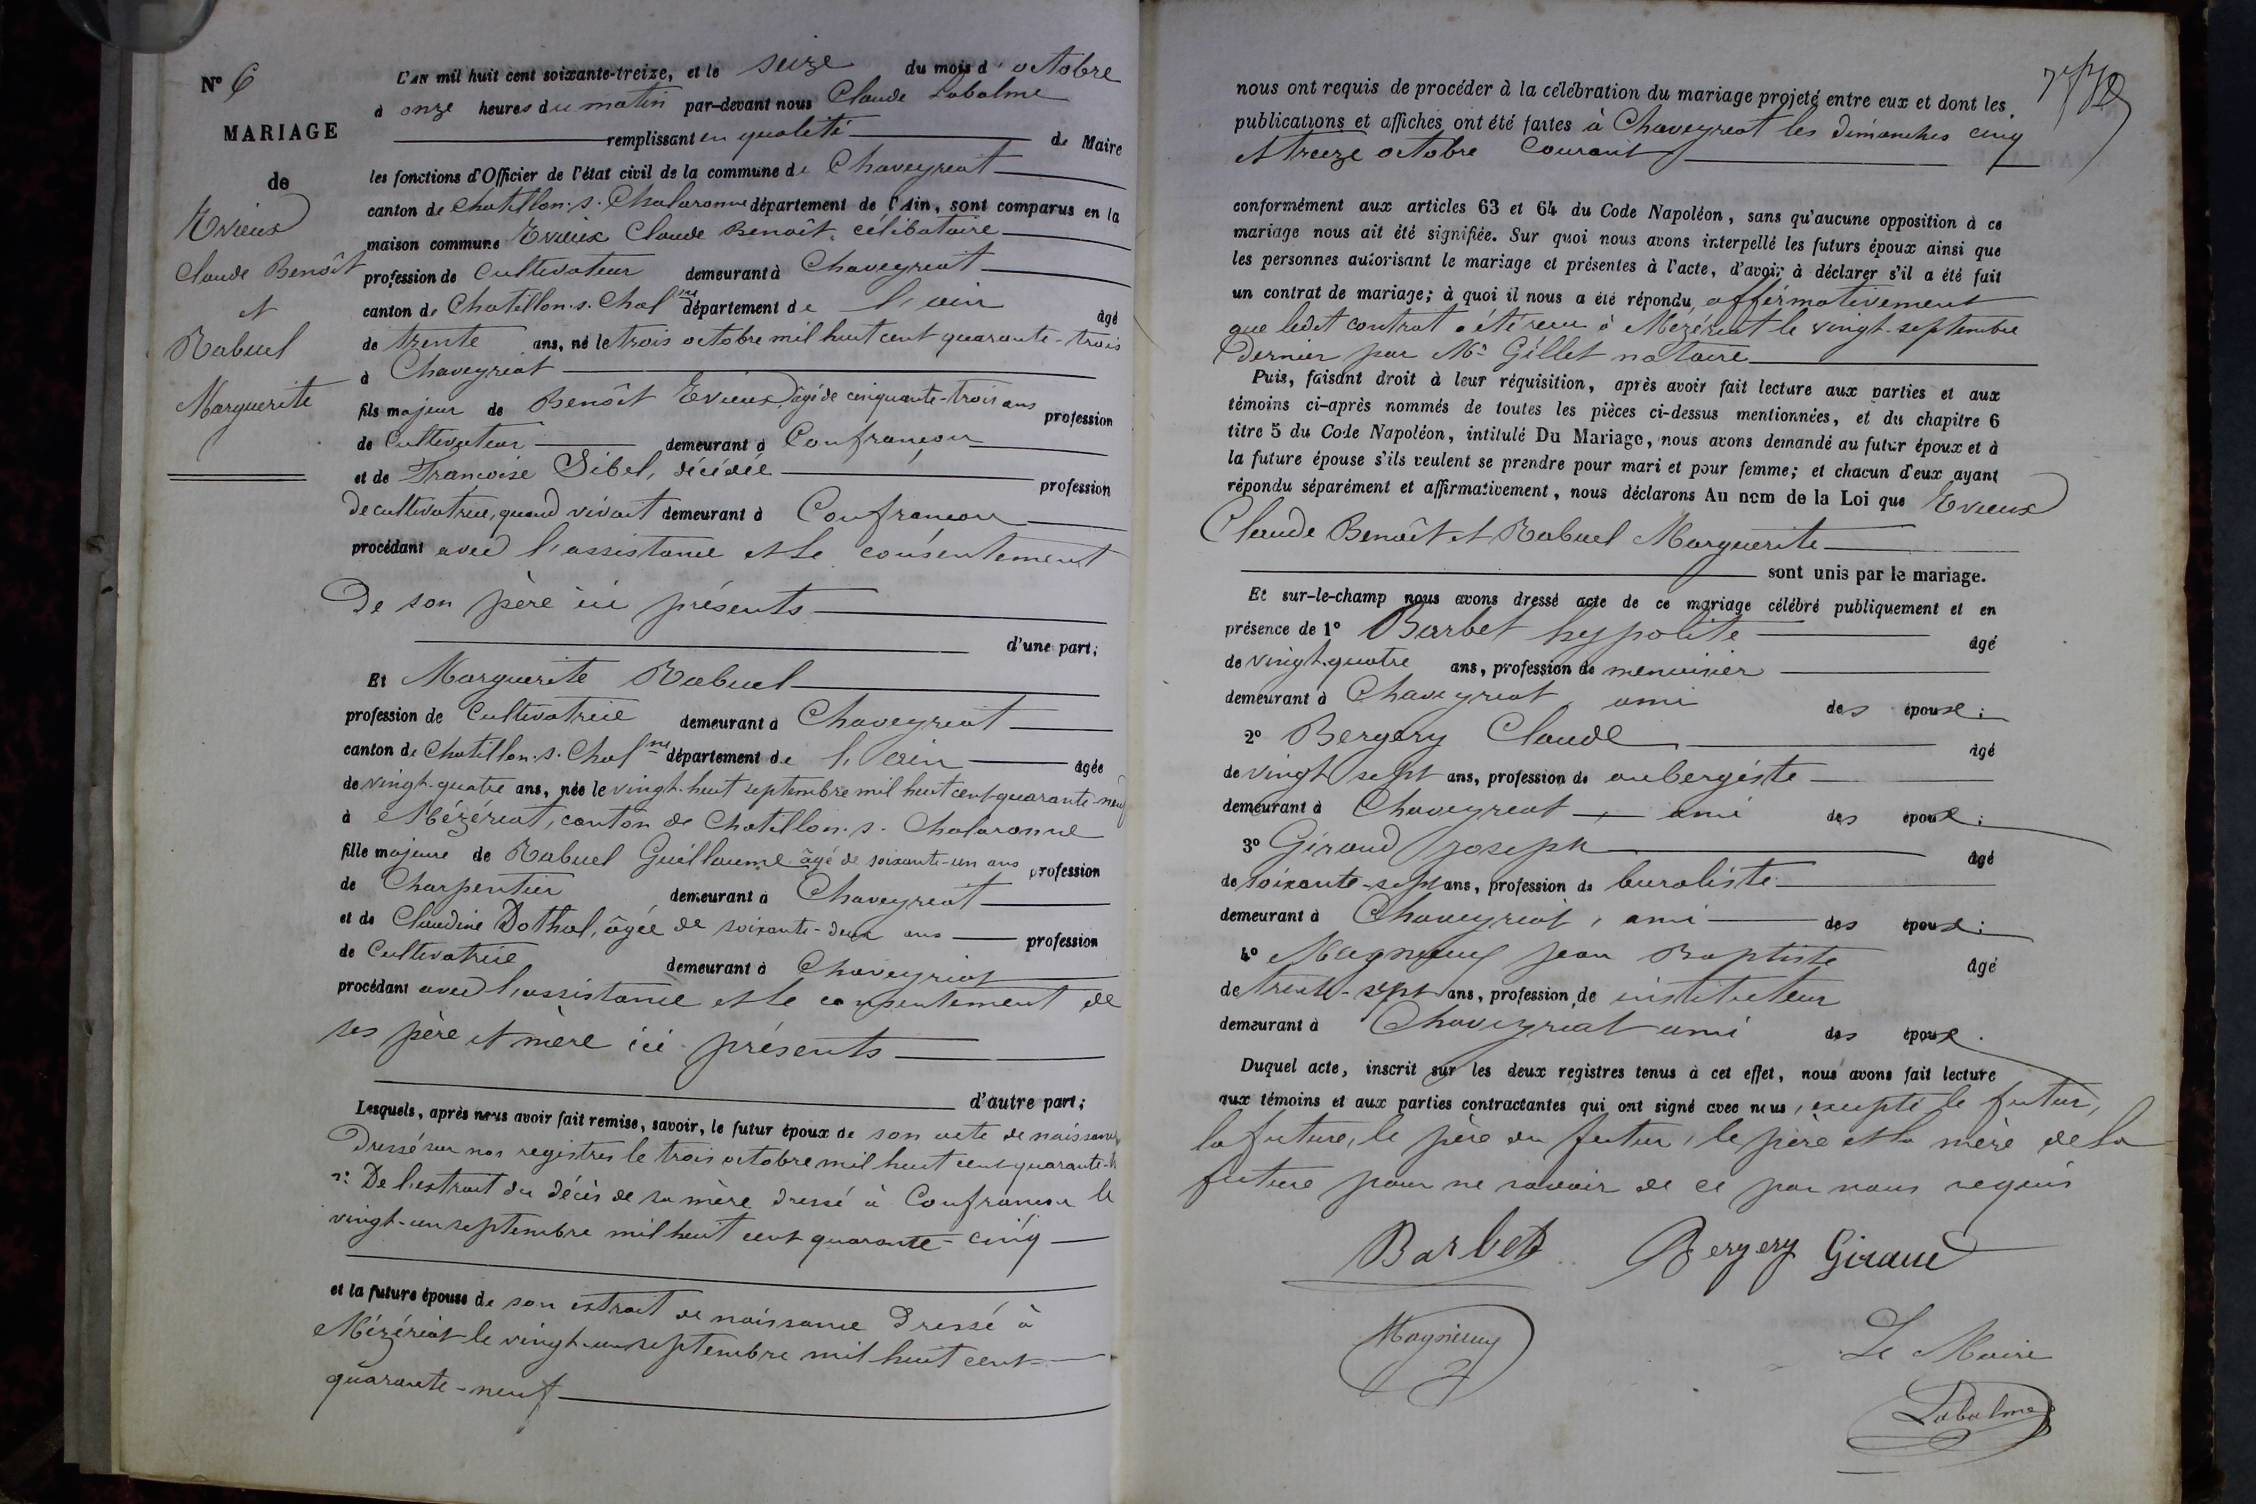 N° 6
MARIAGE
de
Evieux
Claude Benoît
et
Rabuel
Marguerite
L'AN mil huit cent soixante-treize, et le seize du mois d'octobre
à onze heures du matin par-devant nous Claude Labalme
remplissant en qualité de Maire
les fonctions d'Officier de l'état civil de la commune de Chaveyriat
canton de Chatillon-s-Chalaronne département de l'Ain, sont comparus en la
maison commune Evieux Claude Benoît, célibataire
profession de Cultivateur demeurant à Chaveyriat
canton de Chatillon-s-Chal ne département de l'ain âgé
de trente ans, né le trois octobre mil huit cent quarante-trois
à Chaveyriat
fils majeur de Benoît Evieux, âgé de cinquante-trois ans profession
de Cultivateur demeurant à Confrançon
et de Françoise Sibel, décédée profession
de cultivatrice, quand vivait demeurant à Confrançon
procédant avec l'assistance et le consentement
De son père ici présents
d'une part;
Et Marguerite Rabuel
profession de Cultivatrice demeurant à Chaveyriat
canton de Chatillon-s-Chal ne département de l'Ain âgée
de vingt-quatre ans, née le vingt-huit septembre mil huit cent quarante-neuf
à Mézériat, canton de Chatillon-s-Chalaronne
fille majeure de Rabuel Guillaume âgé de soixante-un ans profession
de Charpentier demeurant à Chaveyriat
et de Claudine Dothal, âgée de soixante-deux ans profession
de Cultivatrice demeurant à Chaveyriat
procédant avec l'assistance et le consentement de
ses père et mère ici présents
d'autre part;
Lesquels, après nous avoir fait remise, savoir, le futur époux de son acte de naissance
Dressé sur nos registres le trois octobre mil huit cent quarante-
2° De l'extrait du décès de sa mère dressé à Confrançon le
vingt-un septembre mil huit cent quarante-cinq
et la future épouse de son extrait de naissance Dressé à
Mézériat le vingt-un septembre mil huit cent
quarante-neuf
nous ont requis de procéder à la célébration du mariage projeté entre eux et dont les
publications et affiches ont été faites à Chaveyriat les dimanches cinq
et treize octobre Courant
conformément aux articles 63 et 64 du Code Napoléon, sans qu'aucune opposition à ce
mariage nous ait été signifiée. Sur quoi nous avons interpellé les futurs époux ainsi que
les personnes autorisant le mariage et présentes à l'acte, d'avoir à déclarer s'il a été fait
un contrat de mariage; à quoi il nous a été répondu affirmativement
que ledit contrat a été reçu à Mézériat le vingt septembre
Dernier par Me Gillet notaire
Puis, faisant droit à leur réquisition, après avoir fait lecture aux parties et aux
témoins ci-après nommés de toutes les pièces ci-dessus mentionnées, et du chapitre 6
titre 5 du Code Napoléon, intitulé Du Mariage, nous avons demandé au futur époux et à
la future épouse s'ils veulent se prendre pour mari et pour femme; et chacun d'eux ayant
répondu séparément et affirmativement, nous déclarons Au nom de la Loi que Evieux
Claude Benoît et Rabuel Marguerite
sont unis par le mariage.
Et sur-le-champ nous avons dressé acte de ce mariage célébré publiquement et en
présence de 1° Barbet hyppolite âgé
de vingt-quatre ans, profession de menuisier
demeurant à Chaveyriat ami des époux;
2° Bergery Claude âgé
de vingt sept ans, profession de aubergiste
demeurant à Chaveyriat, ami des époux;
3° Giraud joseph âgé
de soixante-sept ans, profession de buraliste
demeurant à Chaveyriat, ami des époux;
4° Magnieny jean Baptiste âgé
de trente-sept ans, profession de instituteur
demeurant à Chaveyriat ami des époux.
Duquel acte, inscrit sur les deux registres tenus à cet effet, nous avons fait lecture
aux témoins et aux parties contractantes qui ont signé avec nous, excepté le futur,
la future, le père du futur, le père et la mère de la
future pour ne savoir de ce par nous requis
Barbet Bergery Giraud
Magnieny
Le Maire
Labalme